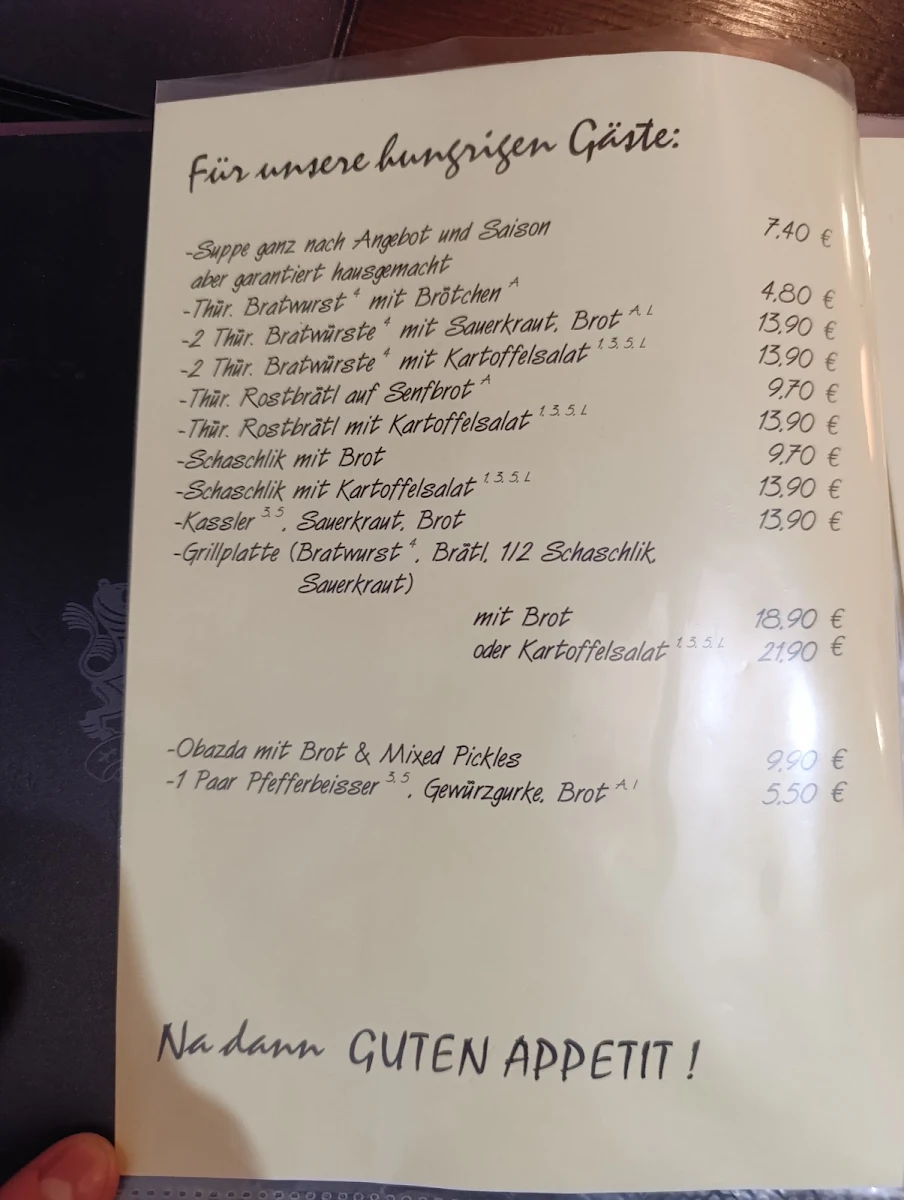 Für unsere hungrigen Gäste:
-Suppe ganz nach Angebot und Saison 7,40 €
aber garantiert hausgemacht
-Thür. Bratwurst 4 mit Brötchen A 4,80 €
-2 Thür. Bratwürste 4 mit Sauerkraut, Brot A, L 13,90 €
-2 Thür. Bratwürste 4 mit Kartoffelsalat 1, 3, 5, L 13,90 €
-Thür. Rostbrätl auf Senfbrot A 9,70 €
-Thür. Rostbrätl mit Kartoffelsalat 1, 3, 5, L 13,90 €
-Schaschlik mit Brot 9,70 €
-Schaschlik mit Kartoffelsalat 1, 3, 5, L 13,90 €
-Kassler 3, 5, Sauerkraut, Brot 13,90 €
-Grillplatte (Bratwurst 4, Brätl, 1/2 Schaschlik,
Sauerkraut)
mit Brot 18,90 €
oder Kartoffelsalat 1, 3, 5, L 21,90 €
-Obazda mit Brot & Mixed Pickles 9,90 €
-1 Paar Pfefferbeisser 3, 5, Gewürzgurke, Brot A, I 5,50 €
Na dann GUTEN APPETIT !